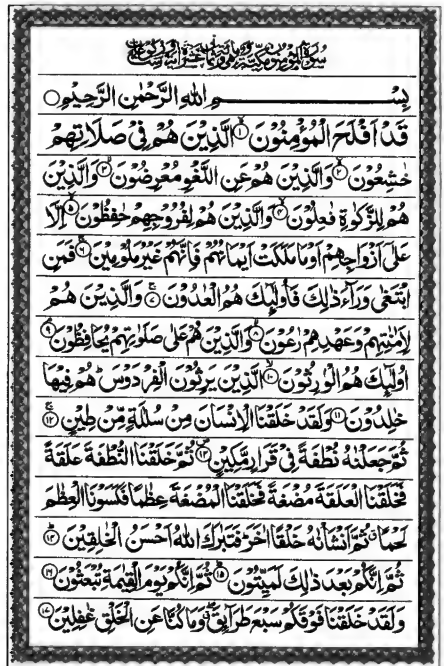 سورة المؤمنون مكية وهي
بِسْمِ اللّٰهِ الرَّحْمٰنِ الرَّحِيْمِ
قَدْ اَفْلَحَ الْمُؤْمِنُوْنَ ۱ الَّذِيْنَ هُمْ فِيْ صَلَاتِهِمْ
خٰشِعُوْنَ ۲ وَالَّذِيْنَ هُمْ عَنِ اللَّغْوِ مُعْرِضُوْنَ ۳ وَالَّذِيْنَ
هُمْ لِلزَّكٰوةِ فٰعِلُوْنَ ۴ وَالَّذِيْنَ هُمْ لِفُرُوْجِهِمْ حٰفِظُوْنَ ۵ اِلَّا
عَلٰٓى اَزْوَاجِهِمْ اَوْ مَا مَلَكَتْ اَيْمَانُهُمْ فَاِنَّهُمْ غَيْرُ مَلُوْمِيْنَ ۶ فَمَنِ
ابْتَغٰى وَرَآءَ ذٰلِكَ فَاُولٰٓئِكَ هُمُ الْعٰدُوْنَ ۷ وَالَّذِيْنَ هُمْ
لِاَمٰنٰتِهِمْ وَعَهْدِهِمْ رٰعُوْنَ ۸ وَالَّذِيْنَ هُمْ عَلٰى صَلَوٰتِهِمْ يُحَافِظُوْنَ ۹
اُولٰٓئِكَ هُمُ الْوٰرِثُوْنَ ۱۰ الَّذِيْنَ يَرِثُوْنَ الْفِرْدَوْسَ هُمْ فِيْهَا
خٰلِدُوْنَ ۱۱ وَلَقَدْ خَلَقْنَا الْاِنْسَانَ مِنْ سُلٰلَةٍ مِّنْ طِيْنٍ ۱۲
ثُمَّ جَعَلْنٰهُ نُطْفَةً فِيْ قَرَارٍ مَّكِيْنٍ ۱۳ ثُمَّ خَلَقْنَا النُّطْفَةَ عَلَقَةً
فَخَلَقْنَا الْعَلَقَةَ مُضْغَةً فَخَلَقْنَا الْمُضْغَةَ عِظٰمًا فَكَسَوْنَا الْعِظٰمَ
لَحْمًا ثُمَّ اَنْشَاْنٰهُ خَلْقًا اٰخَرَ فَتَبٰرَكَ اللّٰهُ اَحْسَنُ الْخٰلِقِيْنَ ۱۴
ثُمَّ اِنَّكُمْ بَعْدَ ذٰلِكَ لَمَيِّتُوْنَ ۱۵ ثُمَّ اِنَّكُمْ يَوْمَ الْقِيٰمَةِ تُبْعَثُوْنَ ۱۶
وَلَقَدْ خَلَقْنَا فَوْقَكُمْ سَبْعَ طَرَآئِقَ وَمَا كُنَّا عَنِ الْخَلْقِ غٰفِلِيْنَ ۱۷